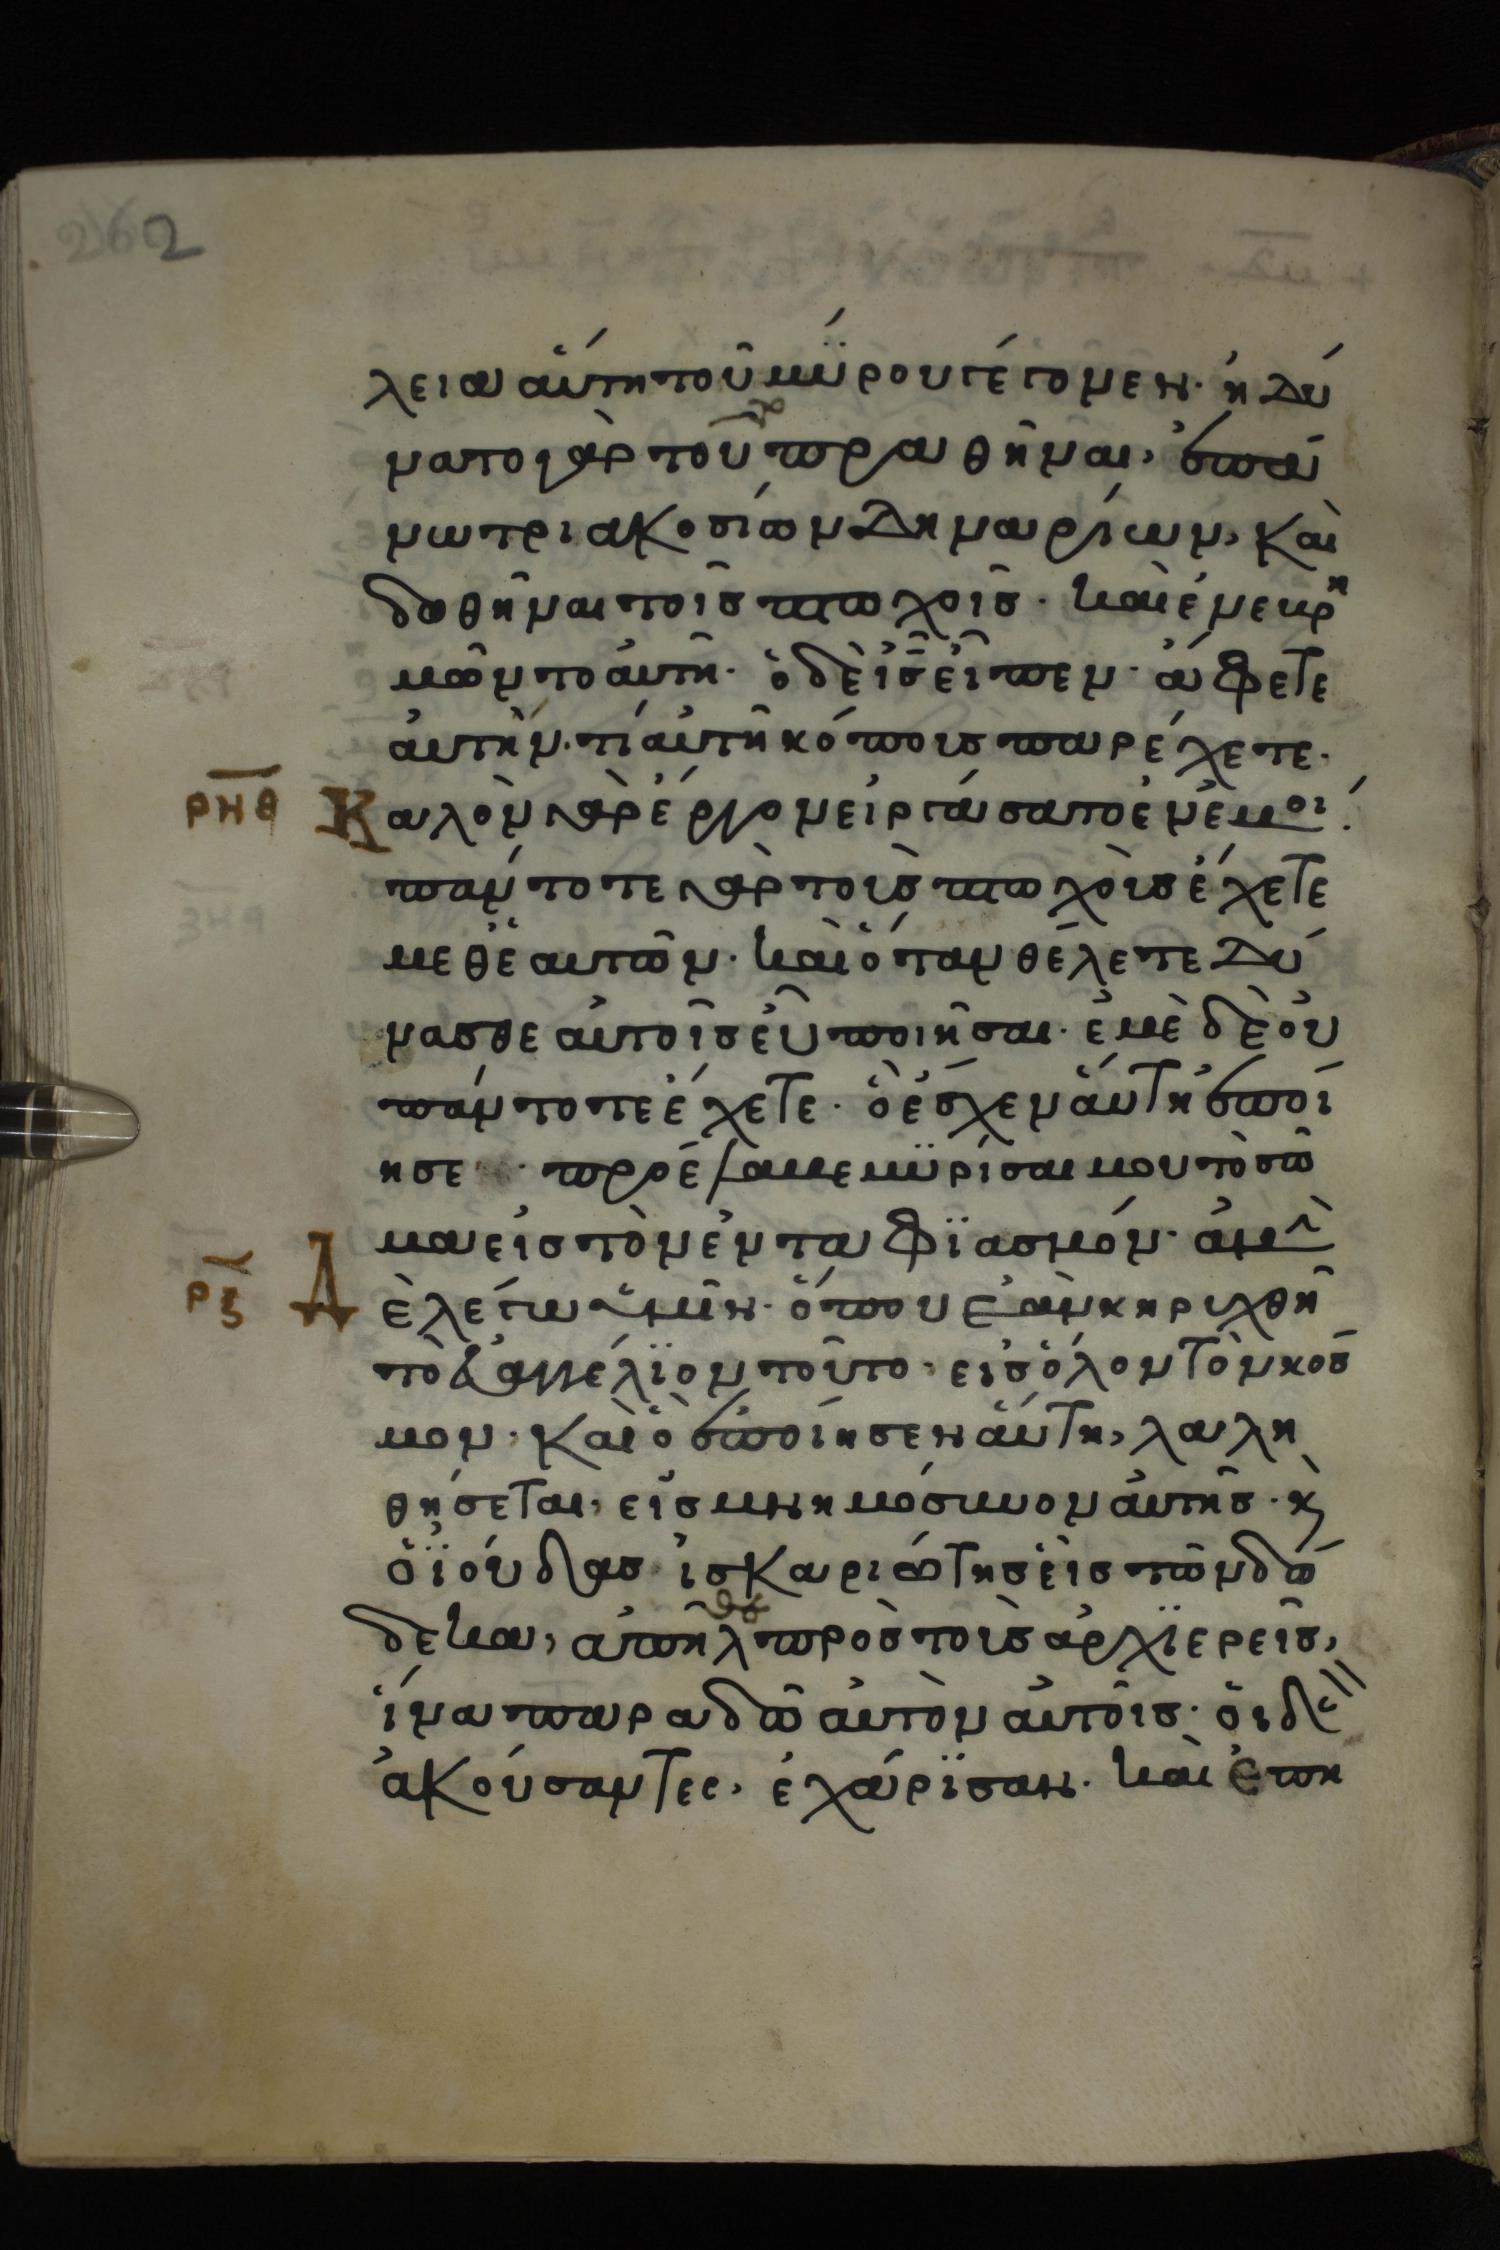 262
λεια αὕτη τοῦ μΰρου γέγονεν· ἠδύ
νατο γὰρ τοῦτο πραθῆναι, ἐπά
νω τριακοσίων δηναρίων, καὶ
δοθῆναι τοῖς πτωχοῖς· καὶ ἐνεβρη
μῶντο αὐτῆ· ὁ δὲ ις εἶπεν· ἄφετε
αὐτήν· τί αὐτῆ κόπους παρέχετε·
ρνθ Καλὸν γὰρ ἔργον εἰργάσατο ἐν ἐμοί·
πάντοτε γὰρ τοὺς πτωχοὺς ἔχετε
μεθ ἑαυτῶν· καὶ ὅταν θέλετε δύ
νασθε αὐτοῖς εὖ ποιῆσαι· ἐμὲ δὲ οὐ
πάντοτε ἔχετε· ὃ ἔσχεν αὕτη ἐποί
ησε· προέλαβε μϋρίσαι μου τὸ σῶ
μα εἰς τὸν ἐνταφϊασμόν· ἀμὴ
ρξ Δὲ λέγω ὑμῖν· ὅπου ἐὰν κηρυχθῆ
τὸ εὐαγγέλϊον τοῦτο· εἰς ὅλον τὸν κόσ
μον· καὶ ὃ ἐποίησεν αὕτη, λαλη
θήσεται, εἰς μνημόσυνον αὐτῆς· κ
ὁ ϊούδας ἰσκαριώτης εἷς τῶν δώ
δεκα, ἀπῆλθε πρὸς τοὺς ἀρχϊερεῖς,
ἵνα παραδῶ αὐτὸν αὐτοῖς· οἱ δὲ
ἀκούσαντες, ἐχάρϊσαν· καὶ ἐπη